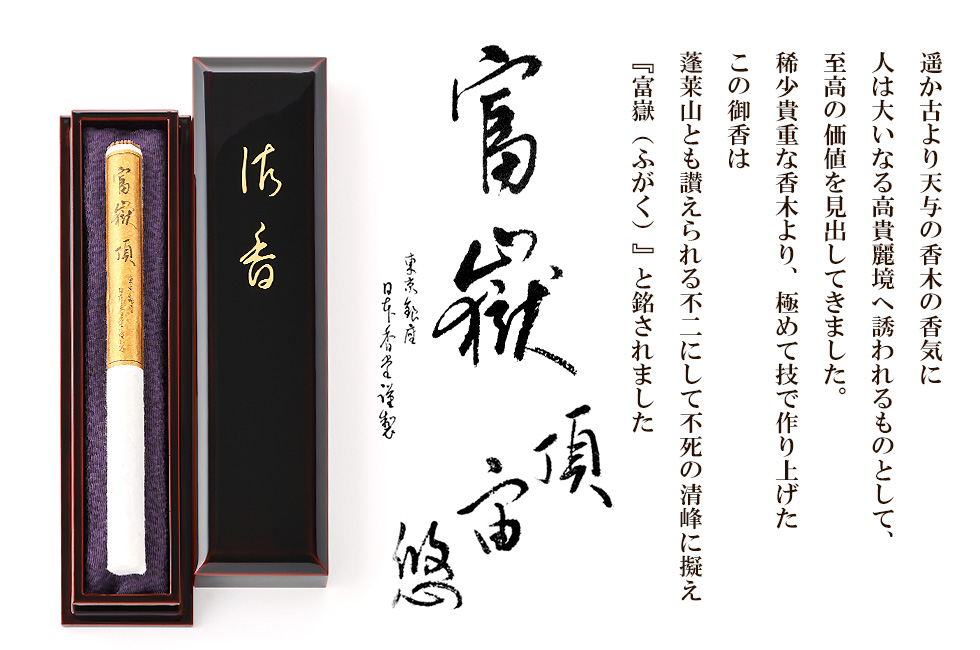 遥か古より天与の香木の香気に
人は大いなる高貴麗境へ誘われるものとして、
至高の価値を見出してきました。
稀少貴重な香木より、極めて技で作り上げた
この御香は
蓬莱山とも讃えられる不二にして不死の清峰に擬え
『富嶽（ふがく）』と銘されました
富嶽
頂
宙
悠
東京銀座
日本香堂謹製
御香
富嶽頂